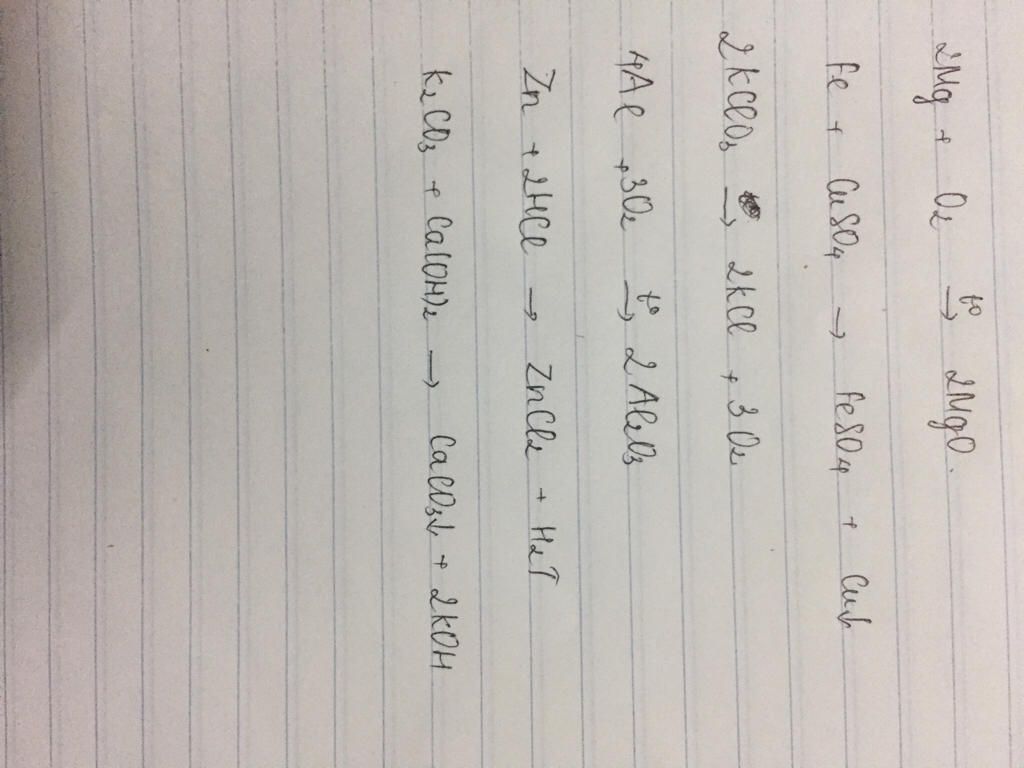 2Mg + O₂ →(t°) 2MgO.
Fe + CuSO₄ → FeSO₄ + Cu↓
2KClO₃ → 2KCl + 3O₂
4Al + 3O₂ →(t°) 2Al₂O₃
Zn + 2HCl → ZnCl₂ + H₂↑
K₂CO₃ + Ca(OH)₂ → CaCO₃↓ + 2KOH